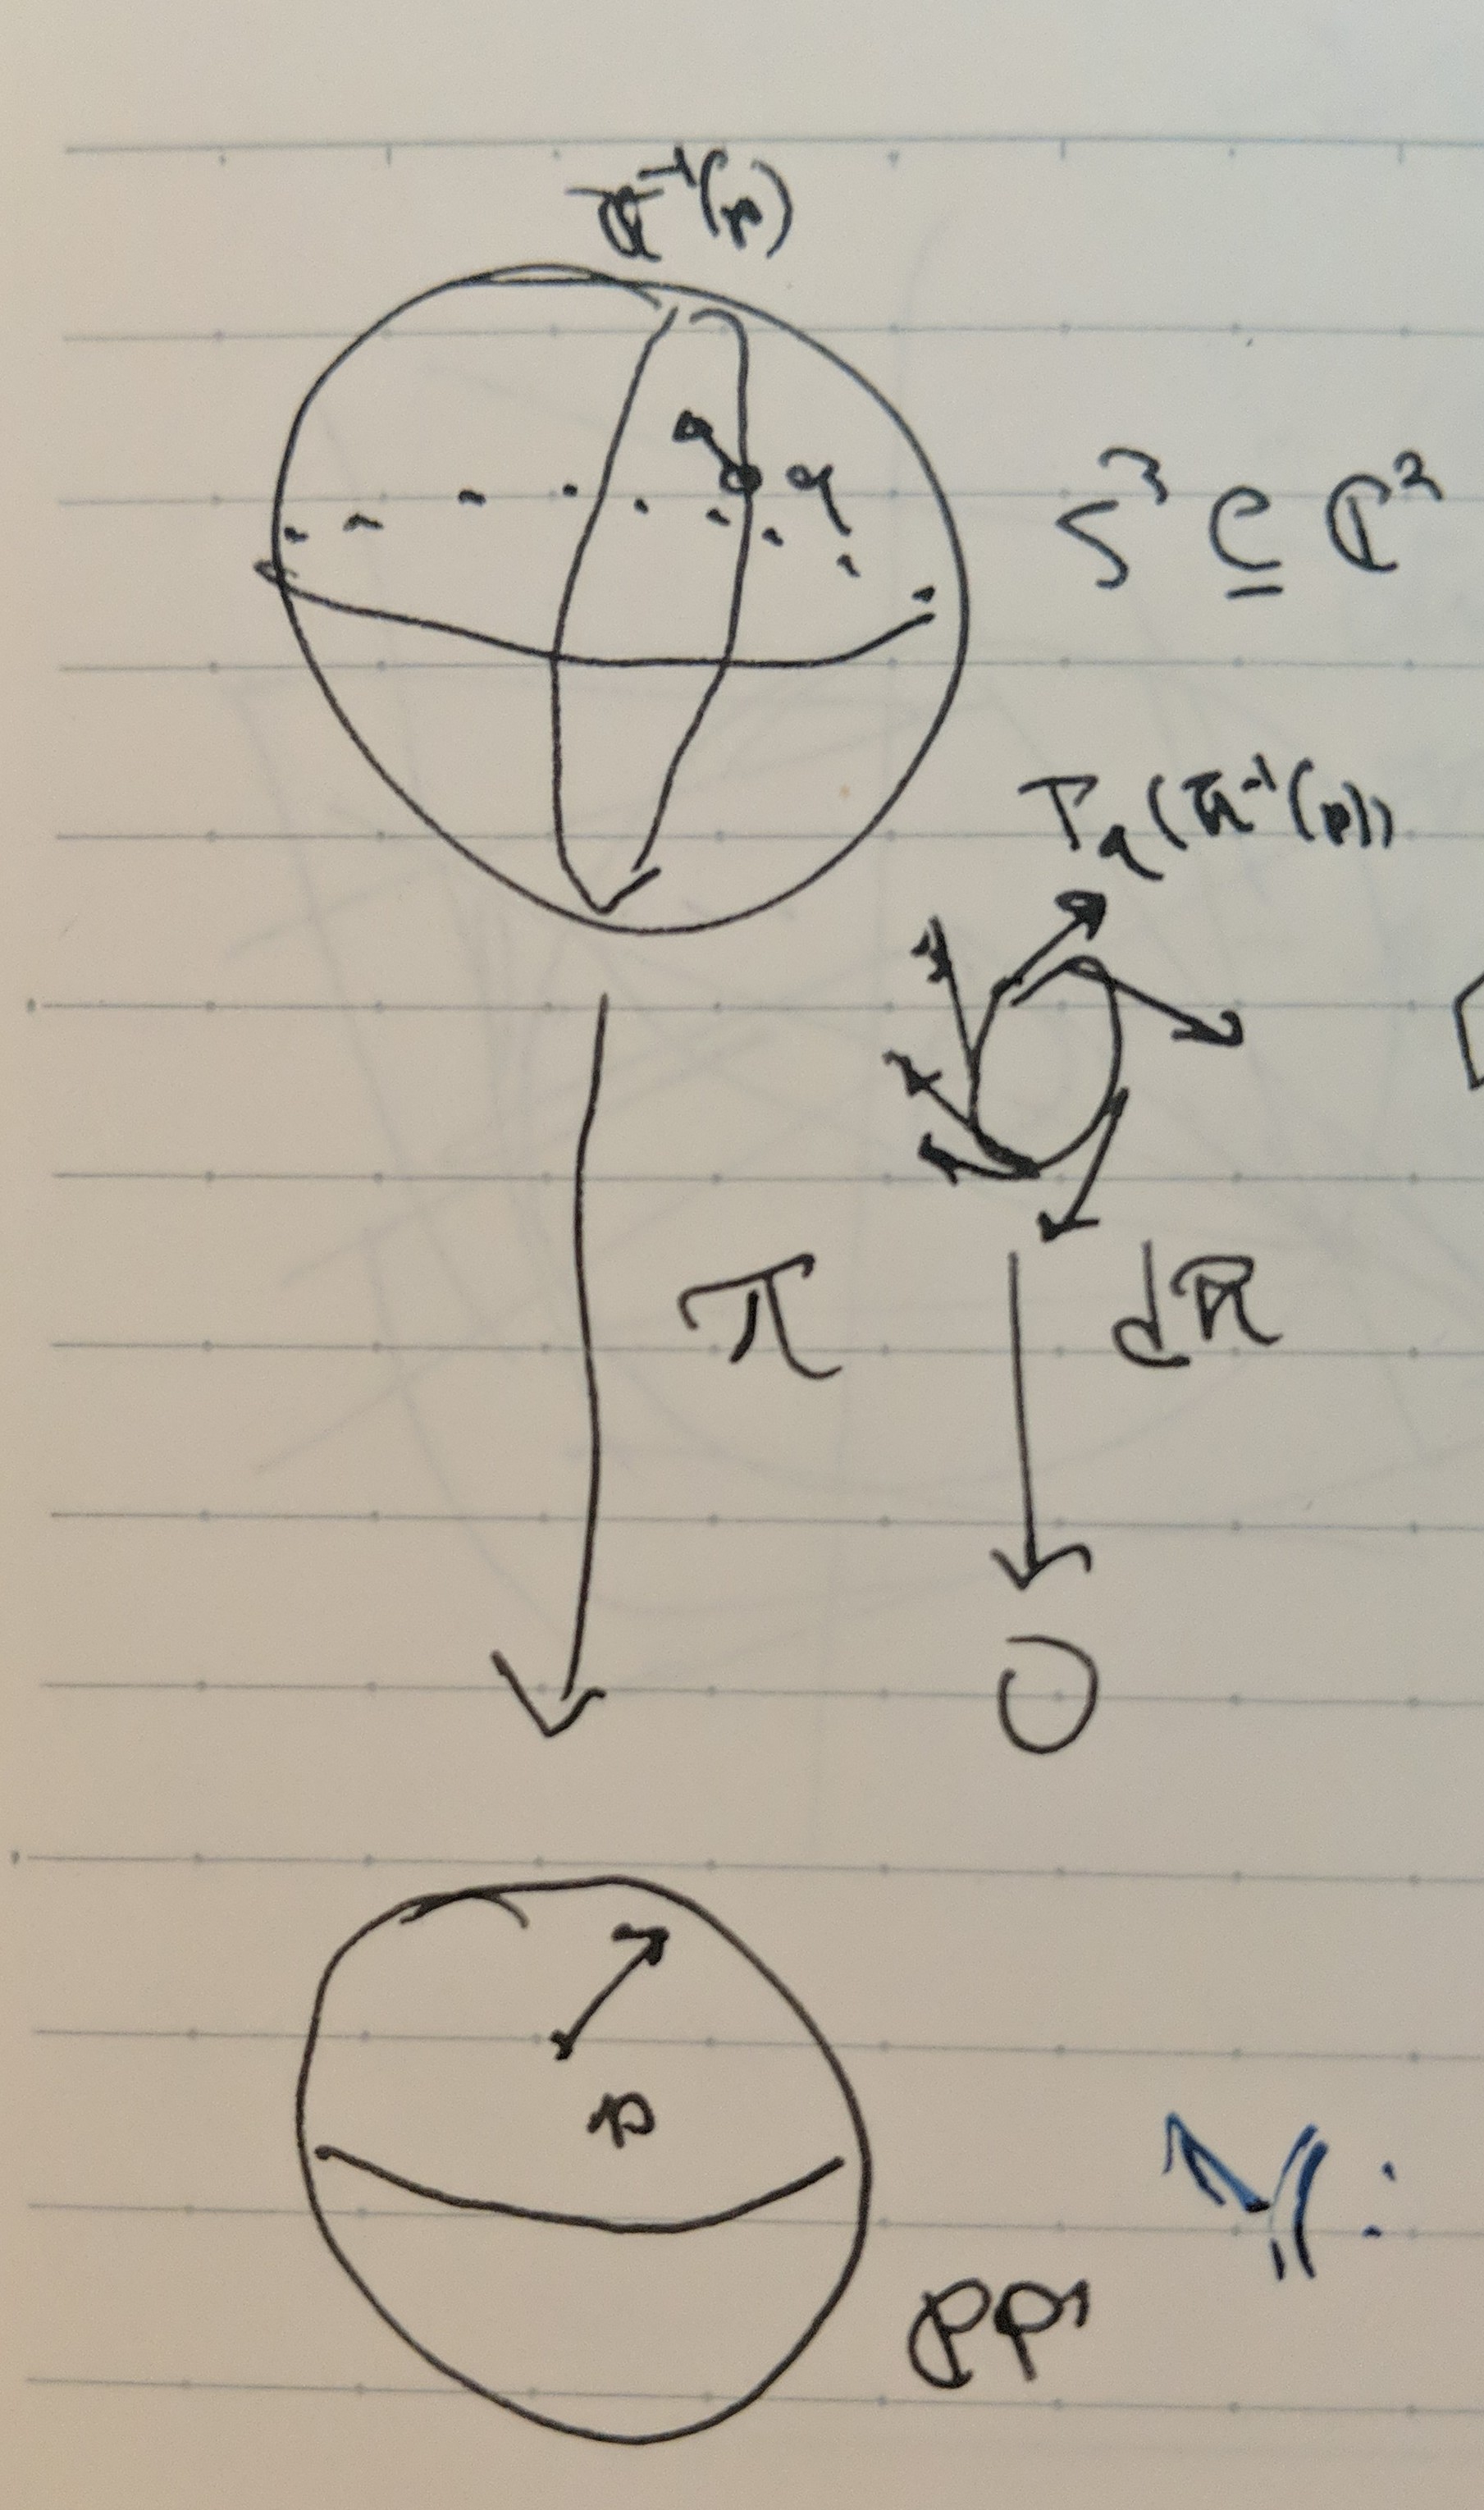 π⁻¹(p)
q
S³ ⊆ ℂ²
T_q(π⁻¹(p))
π
dπ
0
p
ℂP¹